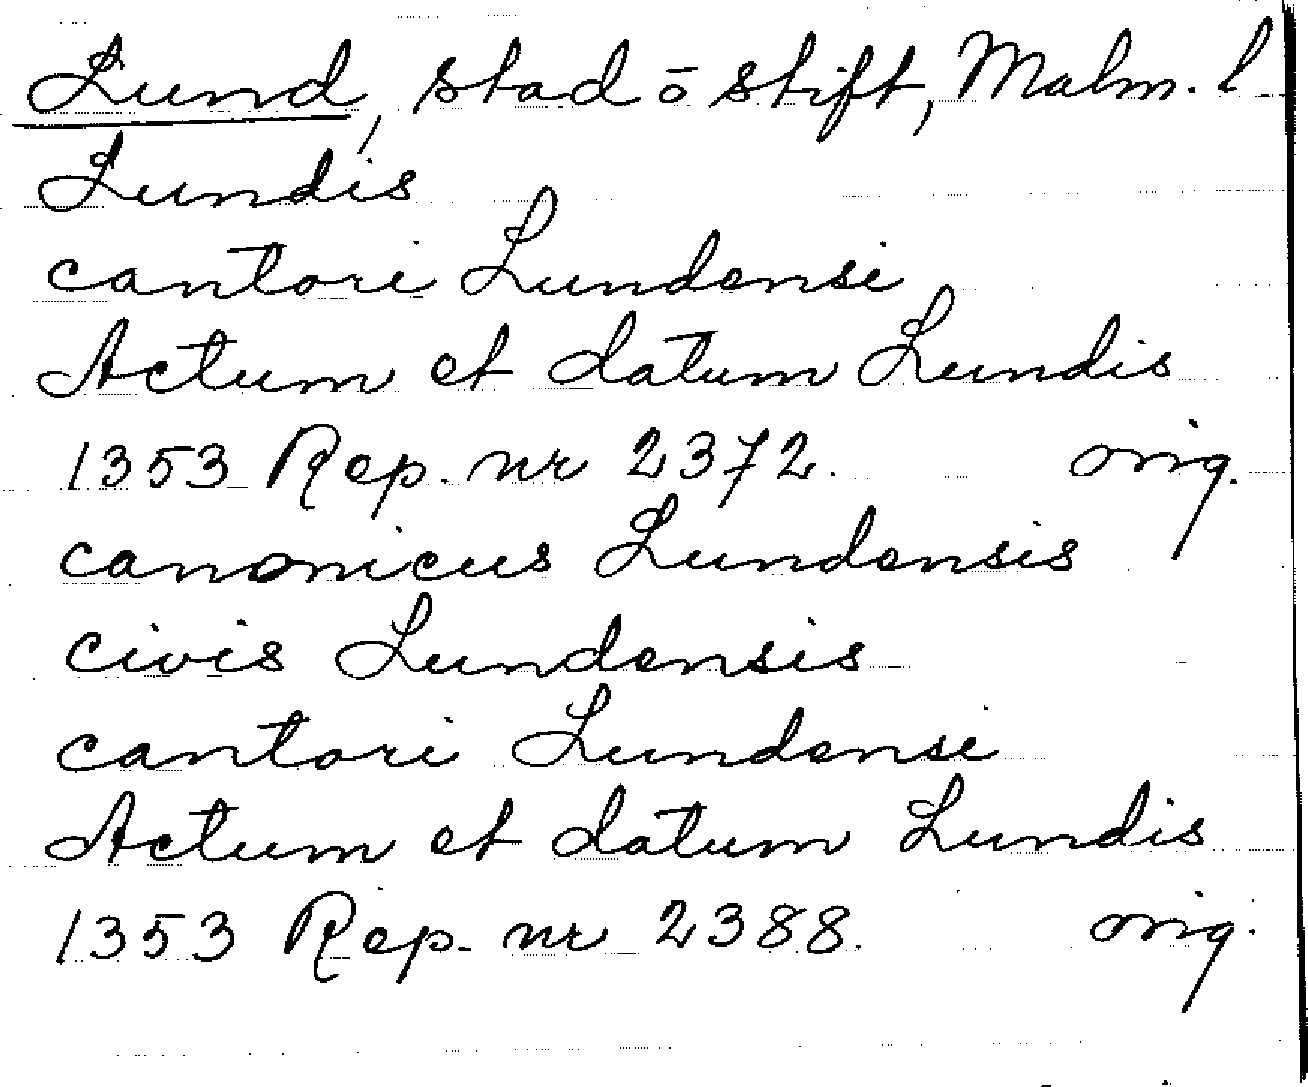 Lund, stad ō stift, Malm. l
Lundis
cantori Lundensi
Actum et datum Lundis
1353 Rep. nr 2372. orig.
canonicus Lundensis
civis Lundensis
cantori Lundensi
Actum et datum Lundis
1353 Rep. nr 2388. orig.